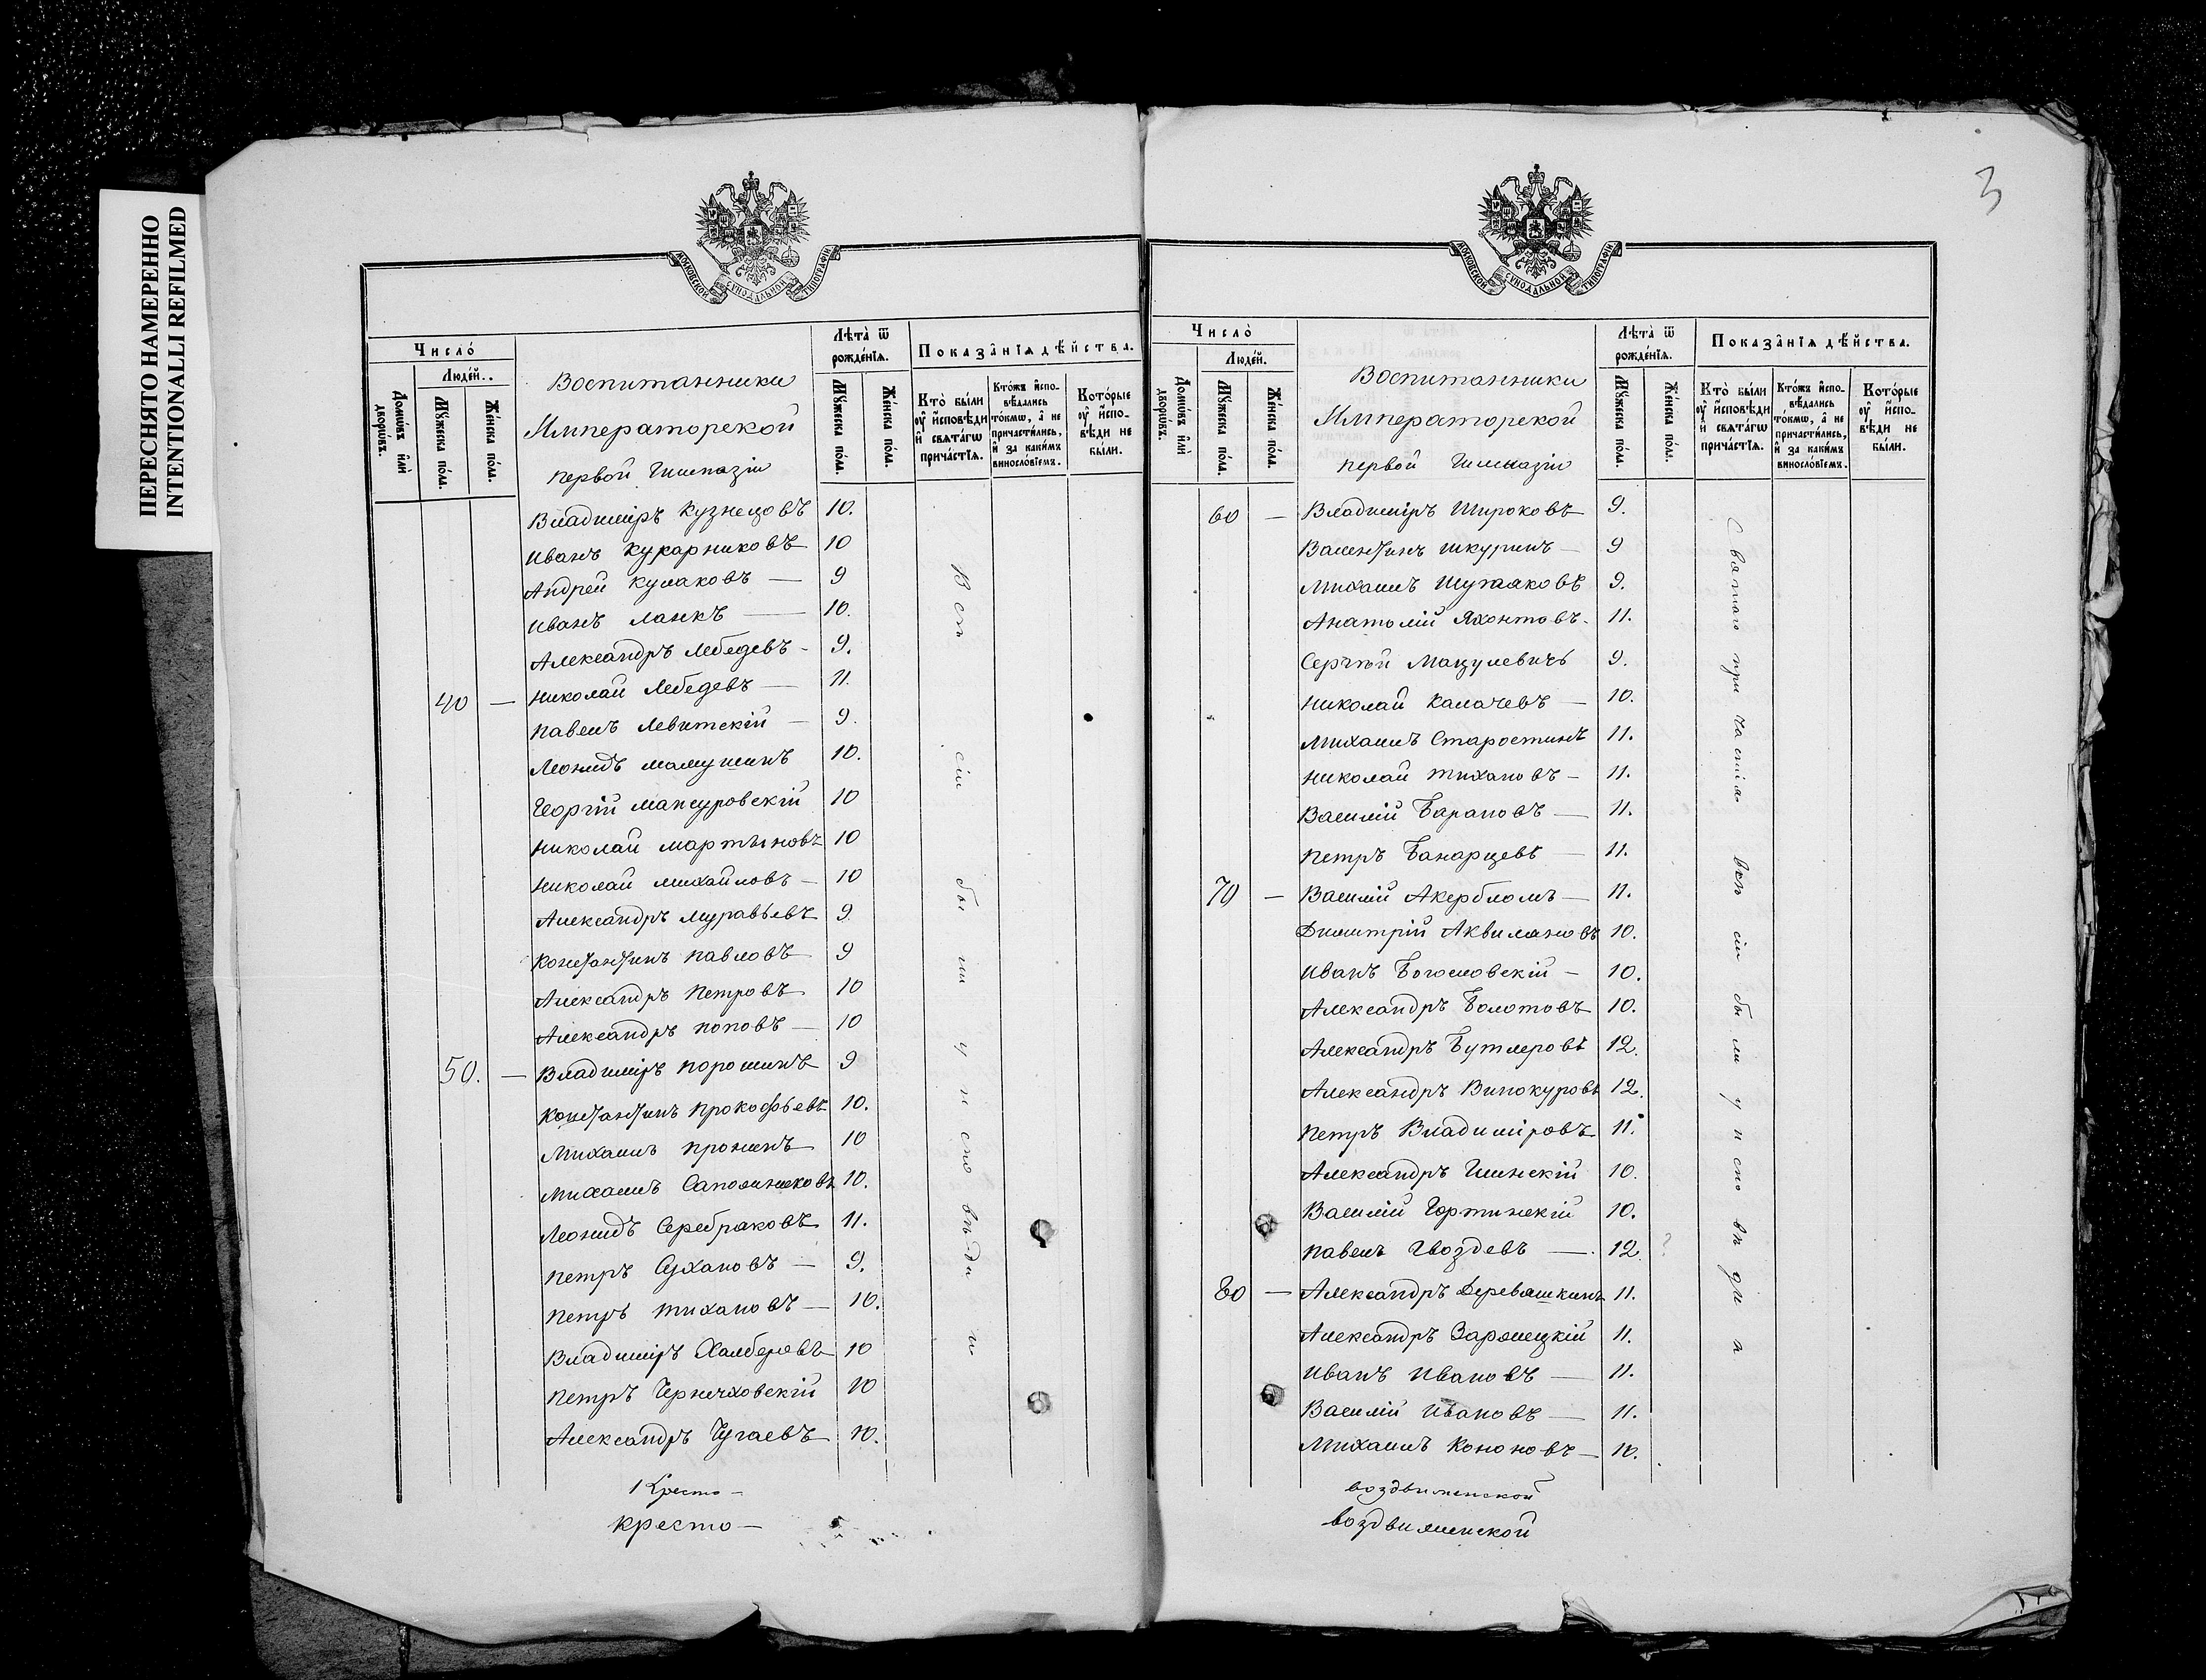 ПЕРЕСНЯТО НАМЕРЕННО
INTENTIONALLI REFILMED
МОСКОВСКОЙ СУНОДАЛЬНОЙ ТИПОГРАФІИ
Число̀
Людéй..
Домѡ́въ и҆лѝ дворѡ́въ.
Мꙋ́жеска пóла.
Жéнска пóла.
Воспитанники
Императорской
первой Гимназіи
Лѣта̀ ѿ рождéнїѧ.
Мꙋ́жеска пóла.
Жéнска пóла.
Показа̂нїѧ дѣ́йства.
Кто̀ бы́ли ᲂу҆ и҆сповѣди и҆ свѧта́гѡ причáстїѧ.
Кто́жъ и҆спо-вѣдались то́кмѡ, а҆ не причасти́лись, и҆ за каки́мъ винослóвїемъ.
Кото́рые ᲂу҆ и҆спо-вѣди не бы́ли.
Владиміръ Кузнецовъ 10.
Иванъ Кухарниковъ 10
Андрей Кулаковъ — 9
Иванъ Ланкъ — 10.
Александръ Лебедевъ - 9.
40 — Николай Лебедевъ — 11.
Павелъ Левитскій — 9.
Леонидъ Мамушинъ 10.
Георгій Мансуровскій 10
Николай Мартыновъ 10
Николай Михайловъ — 10
Александръ Муравьевъ 9
Константинъ Павловъ 9
Александръ Петровъ 10
Александръ Поповъ — 10
50. — Владиміръ Порошинъ 9
Константинъ Прокофьевъ 10.
Михаилъ Пронинъ 10
Михаилъ Сапожниковъ 10.
Леонидъ Серебраковъ 11.
Петръ Сухановъ — 9.
Петръ Тихановъ — 10.
Владиміръ 10
Петръ 10
Александръ Чугаевъ 10.
Всѣ сіи были у исповѣди и
Кресто —
Кресто —
3
МОСКОВСКОЙ СУНОДАЛЬНОЙ ТИПОГРАФІИ
Число̀
Людéй.
Домѡ́въ и҆лѝ дворѡ́въ.
Мꙋ́жеска пóла.
Жéнска пóла.
Воспитанники
Императорской
первой Гимназіи
Лѣта̀ ѿ рождéнїѧ.
Мꙋ́жеска пóла.
Жéнска пóла.
Показа̂нїѧ дѣ́йства.
Кто̀ бы́ли ᲂу҆ и҆сповѣди и҆ свѧта́гѡ причáстїѧ.
Кто́жъ и҆спо-вѣдались то́кмѡ, а҆ не причасти́лись, и҆ за каки́мъ винослóвїемъ.
Кото́рые ᲂу҆ и҆спо-вѣди не бы́ли.
60 — Владиміръ Широковъ 9.
Валентинъ Шкуринъ — 9
Михаилъ 9.
Анатолій Яхонтовъ - 11.
Сергѣй Мацулевичъ 9.
Николай Калачевъ — 10.
Михаилъ Старостинъ 11.
Николай Тихановъ — 11.
Василій Барановъ — 11.
Петръ — 11.
70 — Василій Акербломъ — 11.
Димитрій Аквилановъ 10.
Иванъ Богословскій — 10.
Александръ Болотовъ 10.
Александръ Бутлеровъ 12.
Александръ Винокуровъ 12.
Петръ Владиміровъ 11.
Александръ Глинскій 10.
Василій 10.
Павелъ Гвоздевъ — 12
80 — Александръ Деревяшкинъ 11.
Александръ 11.
Иванъ Ивановъ — 11.
Василій Ивановъ — 11.
Михаилъ Кононовъ — 10.
Святаго причастія всѣ сіи были у исповѣди и
воздвиженской
воздвиженской